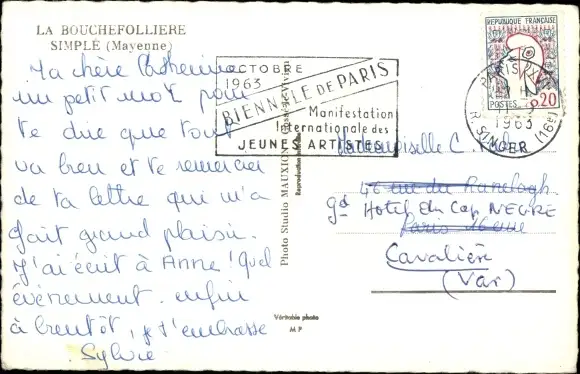 LA BOUCHEFOLLIERE
SIMPLÉ (Mayenne)
Ma chère Catherine
un petit mot pour
te dire que tout
va bien et te remercier
de ta lettre qui m'a
fait grand plaisir.
J'ai écrit à Anne ! Quel
évènement. enfin
à bientôt, je t'embrasse
Sylvie
Véritable photo
M P
Photo Studio MAUXION
Reproduction interdite
OCTOBRE
1963
BIENNALE DE PARIS
Manifestation
Internationale des
JEUNES ARTISTES
REPUBLIQUE FRANÇAISE
POSTES 0,20
PARIS XVI
1963
R. SINGER (16e)
Mademoiselle C.
46 rue du Ranelagh
gd Hotel du Cap NEGRE
Paris 16eme
Cavalière
(Var)